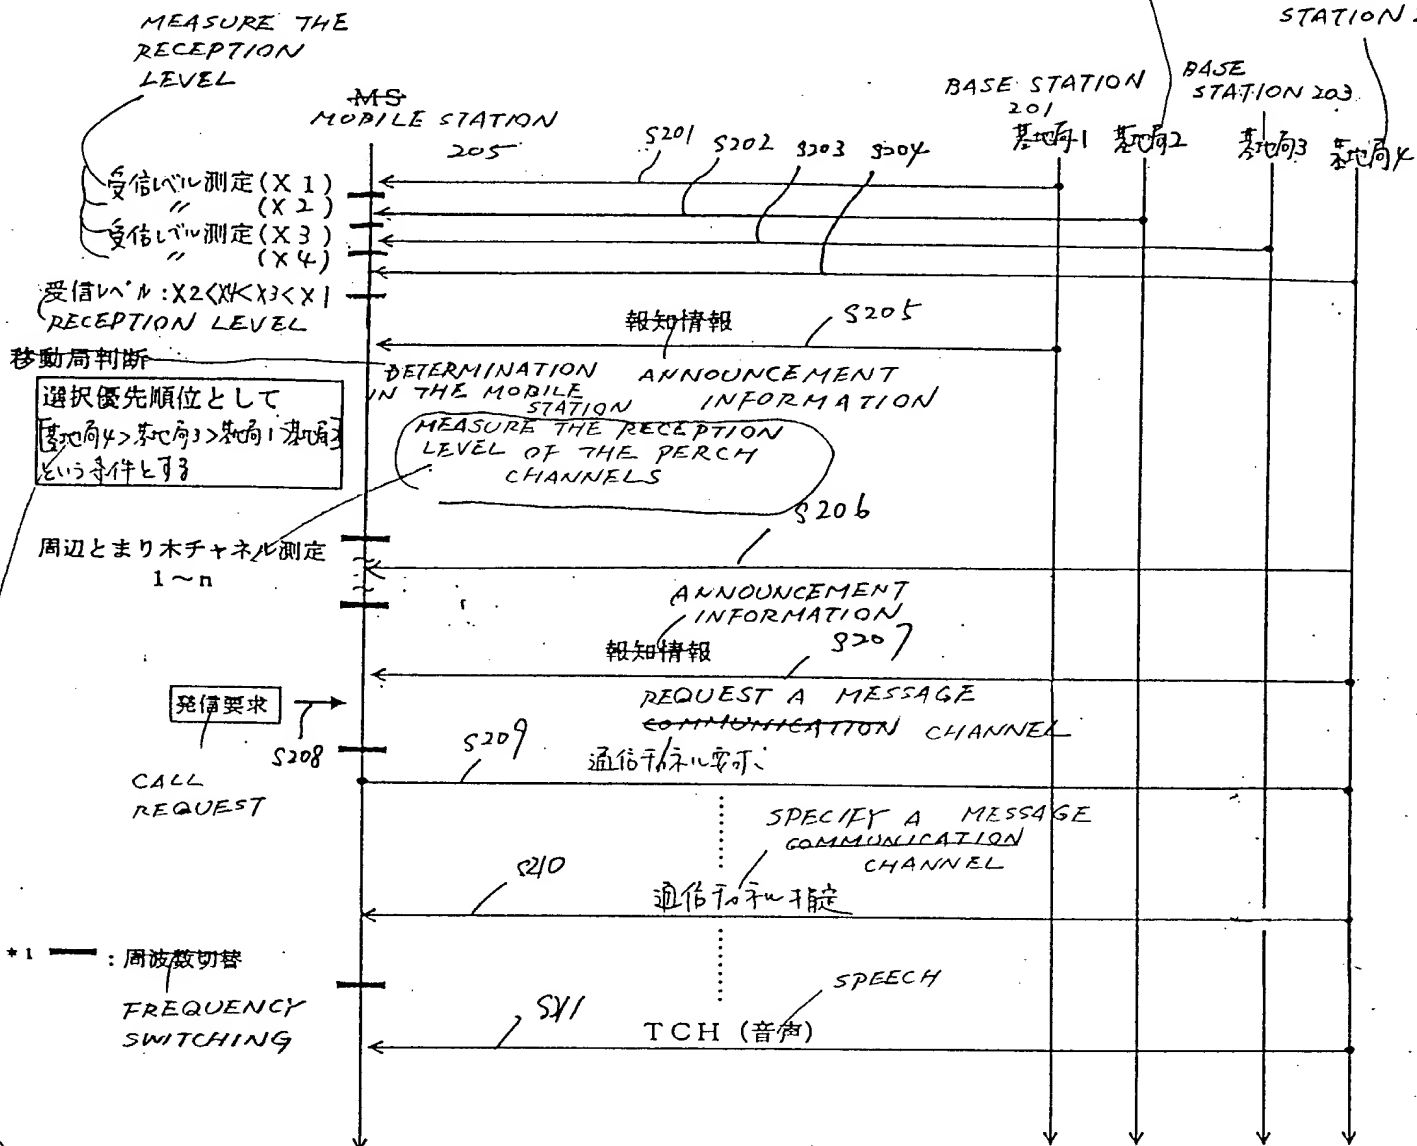 MEASURE THE
RECEPTION
LEVEL
STATION
BASE STATION
201
BASE
STATION 203
MS
MOBILE STATION
205
基地局1
基地局2
基地局3
基地局4
S201
S202
S203
S204
受信レベル測定(X1)
〃 (X2)
受信レベル測定(X3)
〃 (X4)
受信レベル:X2<X4<X3<X1
RECEPTION LEVEL
報知情報
S205
移動局判断
DETERMINATION
IN THE MOBILE
STATION
ANNOUNCEMENT
INFORMATION
選択優先順位として
基地局4>基地局3>基地局1>基地局2
という条件とする
MEASURE THE RECEPTION
LEVEL OF THE PERCH
CHANNELS
S206
周辺とまり木チャネル測定
1~n
ANNOUNCEMENT
INFORMATION
報知情報
S207
発信要求
S208
CALL
REQUEST
REQUEST A MESSAGE
COMMUNICATION CHANNEL
S209
通信チャネル要求
SPECIFY A MESSAGE
COMMUNICATION
CHANNEL
S210
通信チャネル指定
*1 : 周波数切替
FREQUENCY
SWITCHING
SPEECH
S211
TCH (音声)